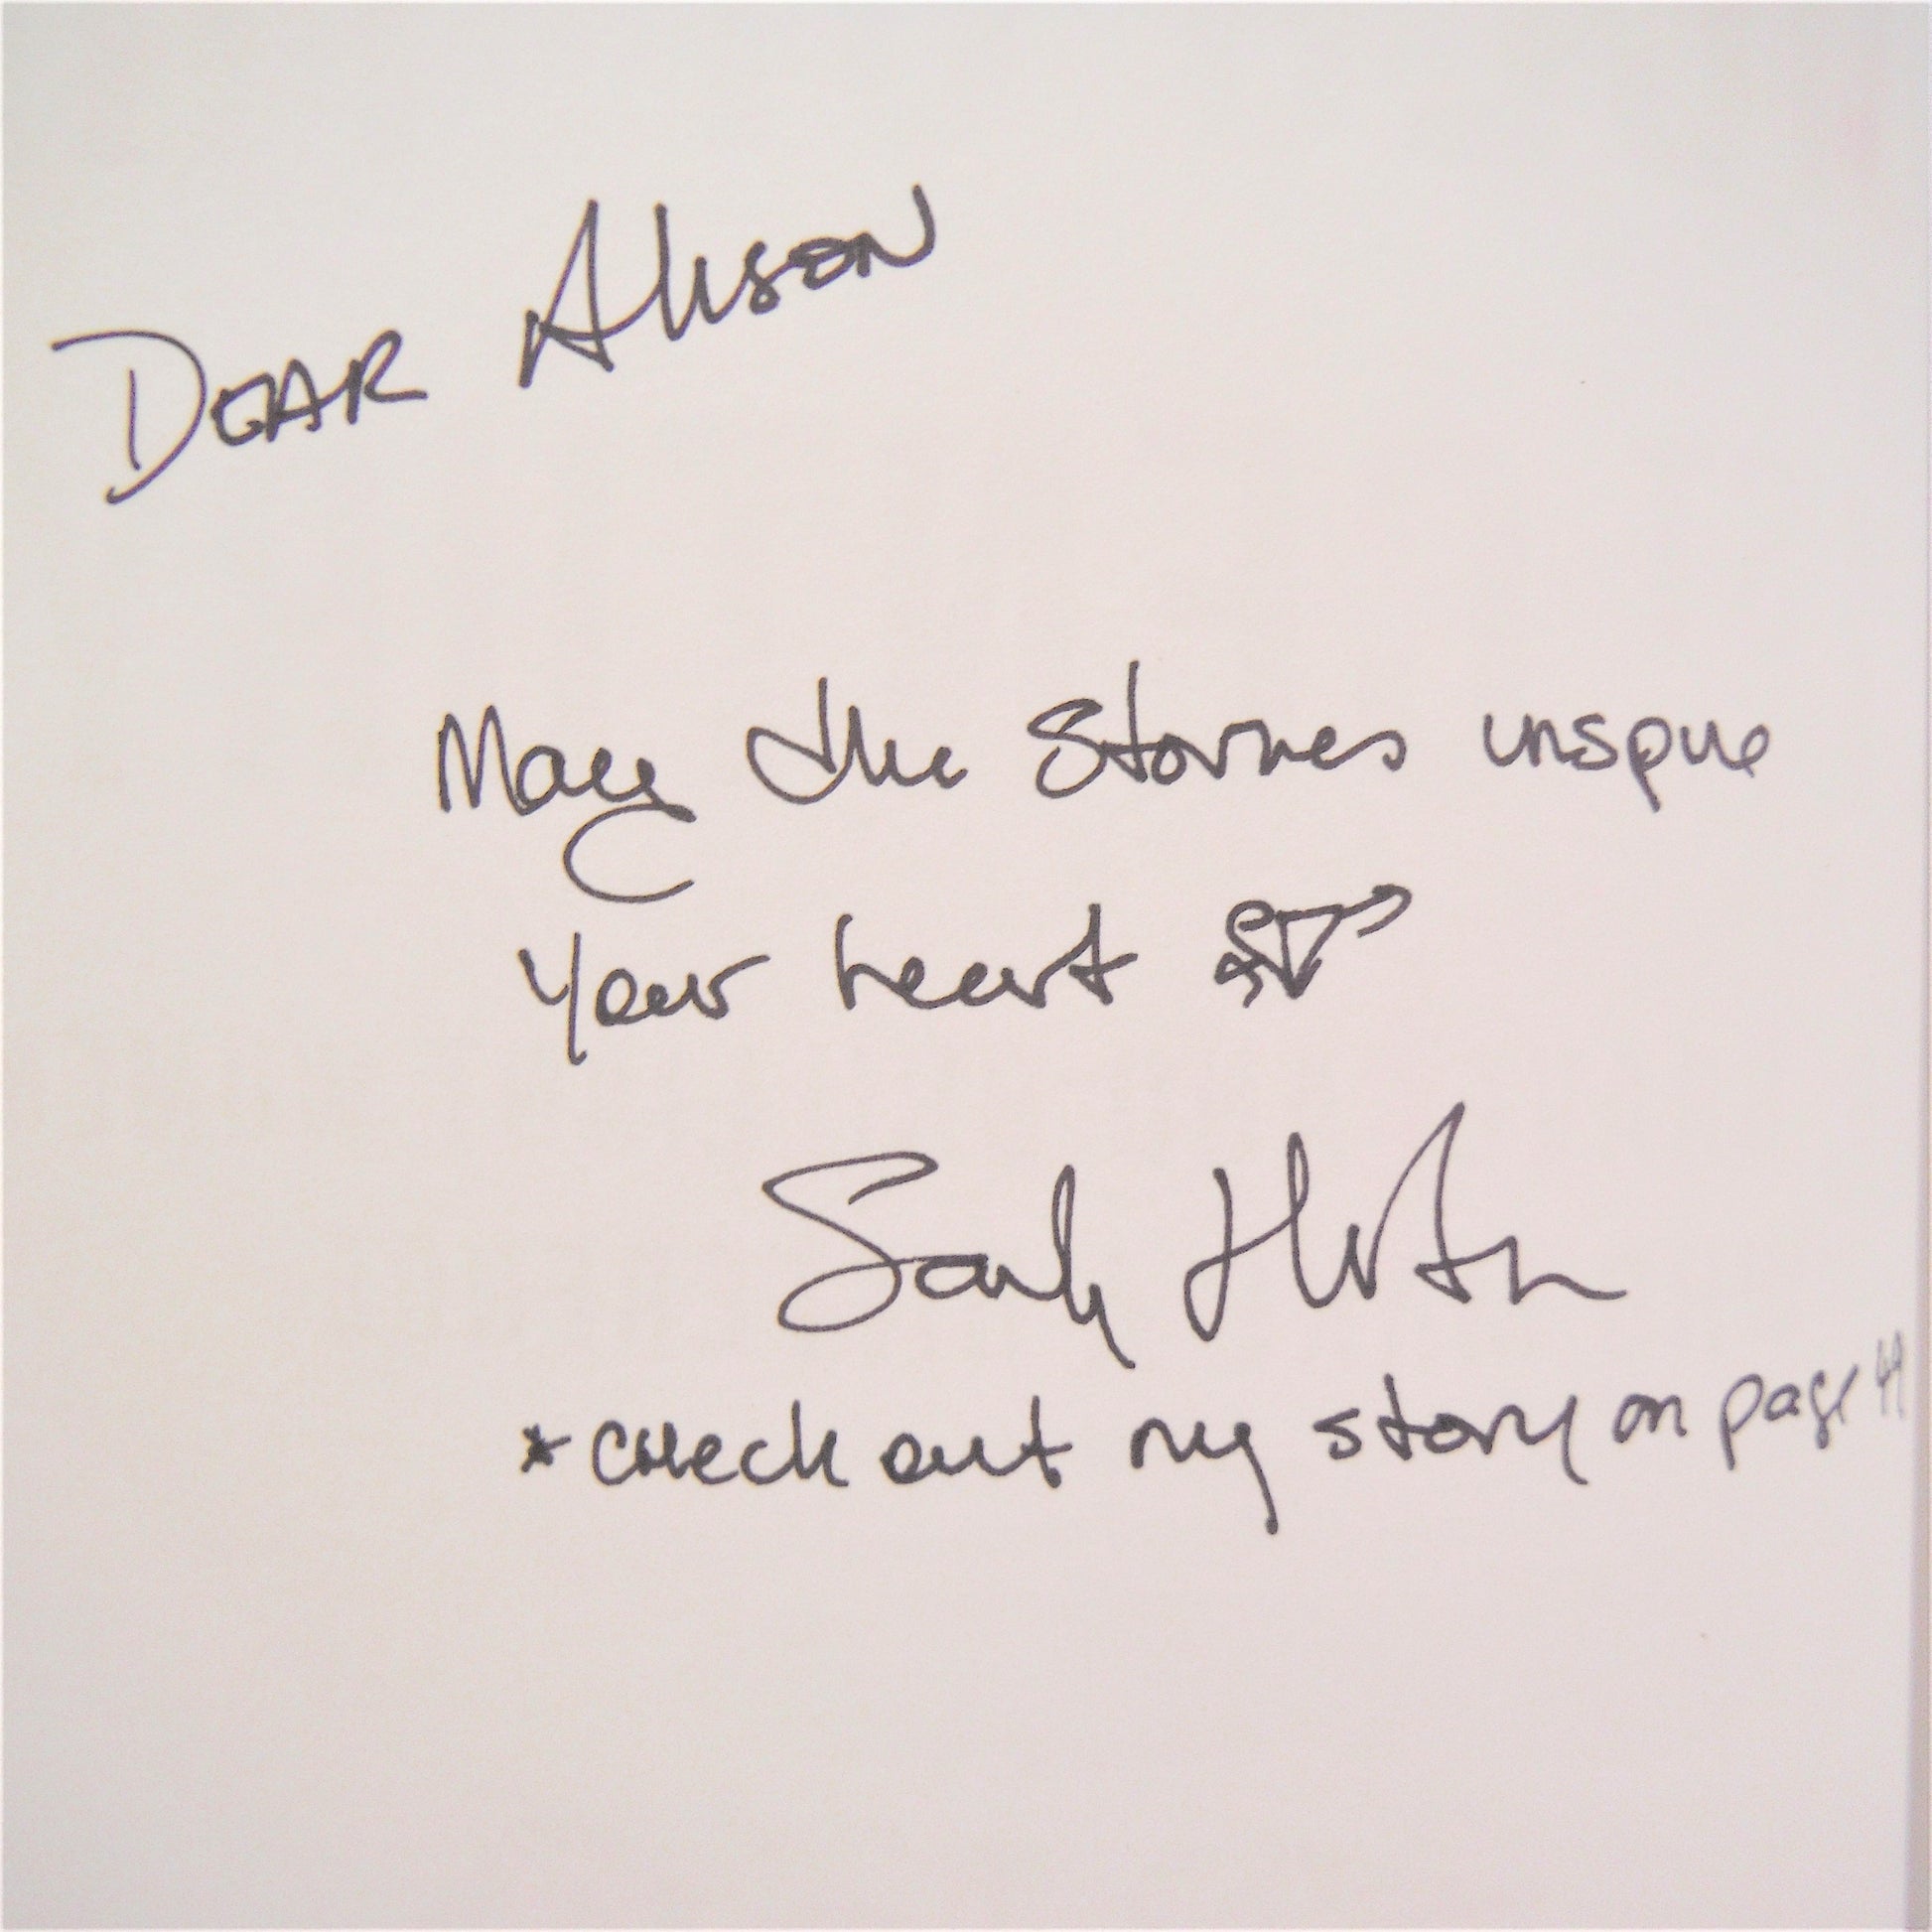 DEAR Alison
May the stories inspire
your heart
Sandy
*check out my story on page